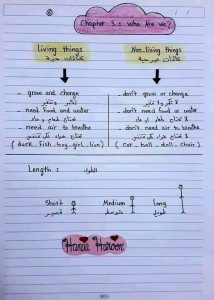 Chapter 3 : Who Are we?
Living things
كائنات حية
Non-living things
كائنات غير حية
- grow and change
تنمو وتتغير
- need food and water
تحتاج طعام و ماء
- need air to breathe
تحتاج هواء لكي تتنفس
( duck - fish - boy - girl - lion )
- don't grow or change
لا تنمو ولا تتغير
- don't need food or water
لا تحتاج طعام او ماء
- don't need air to breathe
لا تحتاج هواء لكي تتنفس
( car - ball - doll - chair )
Length :
الطول
Short
قصير
Medium
متوسط
Long
طويل
Hanaa Haroon